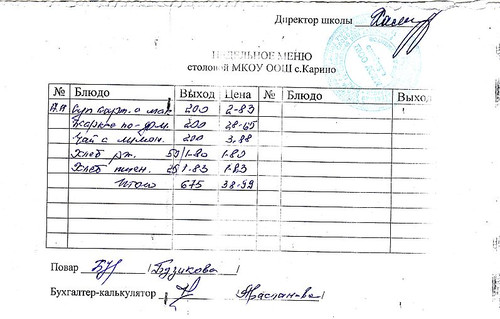 Директор школы
НЕДЕЛЬНОЕ МЕНЮ
столовой МКОУ ООШ с.Карино
№ Блюдо Выход Цена № Блюдо Выход
Суп карт. с мак. 200 2-83
Жаркое по-дом. 200 28-65
Чай с лимон. 200 3,88
Хлеб рж. 50/1-80 1-80
Хлеб пшен. 25/1-83 1-83
Итого 675 38-99
Повар /Бузикова/
Бухгалтер-калькулятор